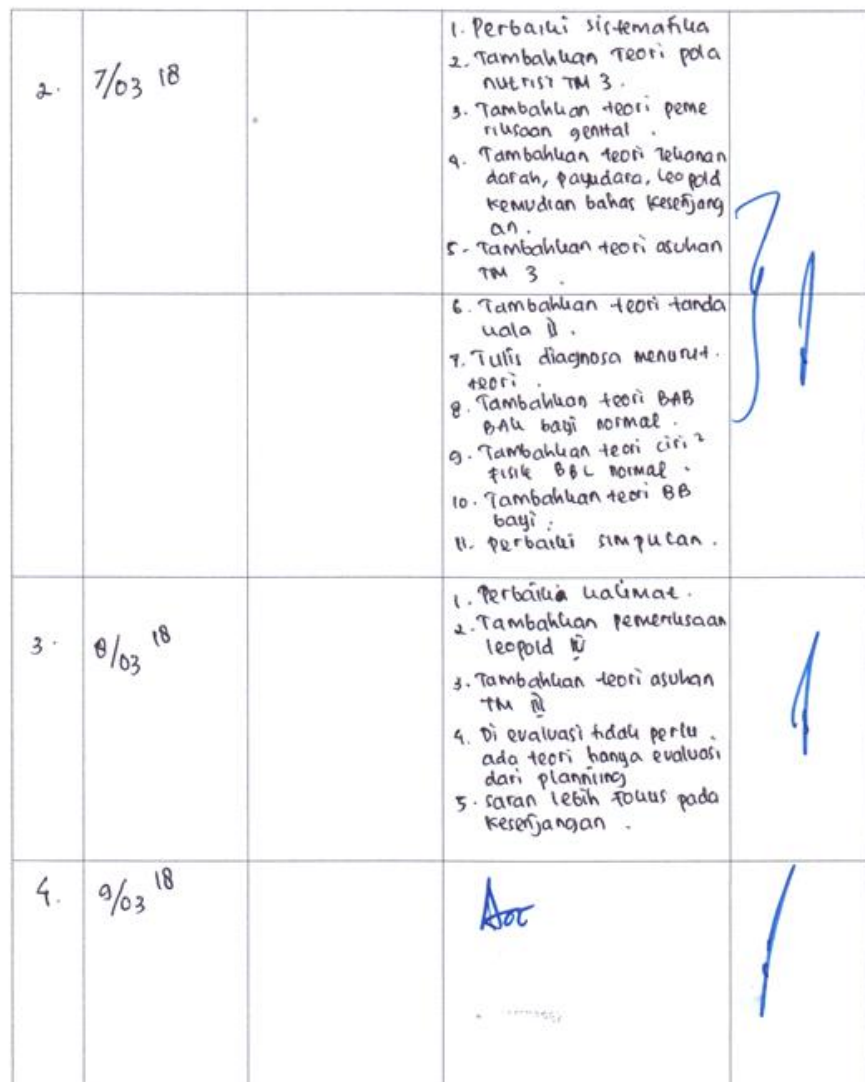 2. 7/03 18
1. Perbaiki sistematika
2. Tambahkan Teori pola
nutrisi TM 3.
3. Tambahkan teori peme
riksaan genital.
4. Tambahkan teori Tekanan
darah, payudara, leopold
kemudian bahas kesenjang
an.
5. Tambahkan teori asuhan
TM 3.
6. Tambahkan teori tanda
kala II.
7. Tulis diagnosa menurut
teori.
8. Tambahkan teori BAB
BAK bayi normal.
9. Tambahkan teori ciri²
fisik BBL normal.
10. Tambahkan teori BB
bayi.
11. Perbaiki simpulan.
3. 8/03 18
1. Perbaikia kalimat.
2. Tambahkan pemeriksaan
leopold IV
3. Tambahkan teori asuhan
TM III
4. Di evaluasi tidak perlu
ada teori hanya evaluasi
dari planniing
5. saran lebih fokus pada
kesenjangan.
4. 9/03 18
Acc